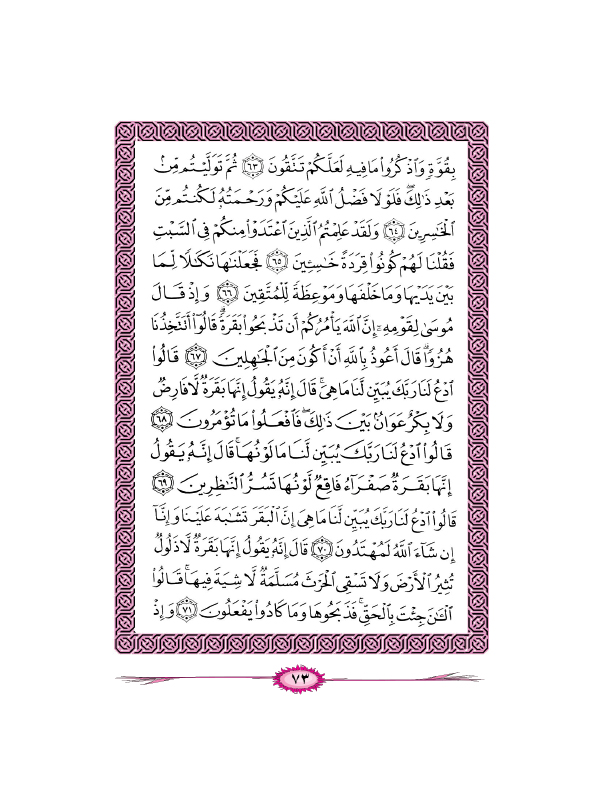 بِقُوَّةٍ وَٱذْكُرُوا۟ مَا فِيهِ لَعَلَّكُمْ تَتَّقُونَ ﴿٦٣﴾ ثُمَّ تَوَلَّيْتُم مِّنۢ
بَعْدِ ذَٰلِكَ ۖ فَلَوْلَا فَضْلُ ٱللَّهِ عَلَيْكُمْ وَرَحْمَتُهُۥ لَكُنتُم مِّنَ
ٱلْخَٰسِرِينَ ﴿٦٤﴾ وَلَقَدْ عَلِمْتُمُ ٱلَّذِينَ ٱعْتَدَوْا۟ مِنكُمْ فِى ٱلسَّبْتِ
فَقُلْنَا لَهُمْ كُونُوا۟ قِرَدَةً خَٰسِـِٔينَ ﴿٦٥﴾ فَجَعَلْنَٰهَا نَكَٰلًا لِّمَا
بَيْنَ يَدَيْهَا وَمَا خَلْفَهَا وَمَوْعِظَةً لِّلْمُتَّقِينَ ﴿٦٦﴾ وَإِذْ قَالَ
مُوسَىٰ لِقَوْمِهِۦٓ إِنَّ ٱللَّهَ يَأْمُرُكُمْ أَن تَذْبَحُوا۟ بَقَرَةً ۖ قَالُوٓا۟ أَتَتَّخِذُنَا
هُزُوًا ۖ قَالَ أَعُوذُ بِٱللَّهِ أَنْ أَكُونَ مِنَ ٱلْجَٰهِلِينَ ﴿٦٧﴾ قَالُوا۟
ٱدْعُ لَنَا رَبَّكَ يُبَيِّن لَّنَا مَا هِىَ ۚ قَالَ إِنَّهُۥ يَقُولُ إِنَّهَا بَقَرَةٌ لَّا فَارِضٌ
وَلَا بِكْرٌ عَوَانٌۢ بَيْنَ ذَٰلِكَ ۖ فَٱفْعَلُوا۟ مَا تُؤْمَرُونَ ﴿٦٨﴾
قَالُوا۟ ٱدْعُ لَنَا رَبَّكَ يُبَيِّن لَّنَا مَا لَوْنُهَا ۚ قَالَ إِنَّهُۥ يَقُولُ
إِنَّهَا بَقَرَةٌ صَفْرَآءُ فَاقِعٌ لَّوْنُهَا تَسُرُّ ٱلنَّٰظِرِينَ ﴿٦٩﴾
قَالُوا۟ ٱدْعُ لَنَا رَبَّكَ يُبَيِّن لَّنَا مَا هِىَ إِنَّ ٱلْبَقَرَ تَشَٰبَهَ عَلَيْنَا وَإِنَّآ
إِن شَآءَ ٱللَّهُ لَمُهْتَدُونَ ﴿٧٠﴾ قَالَ إِنَّهُۥ يَقُولُ إِنَّهَا بَقَرَةٌ لَّا ذَلُولٌ
تُثِيرُ ٱلْأَرْضَ وَلَا تَسْقِى ٱلْحَرْثَ مُسَلَّمَةٌ لَّا شِيَةَ فِيهَا ۚ قَالُوا۟
ٱلْـَٰٔنَ جِئْتَ بِٱلْحَقِّ ۚ فَذَبَحُوهَا وَمَا كَادُوا۟ يَفْعَلُونَ ﴿٧١﴾ وَإِذْ
٧٣